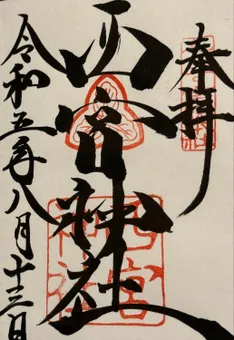 奉拝
西宮神社
令和五年八月十三日
西宮
神社